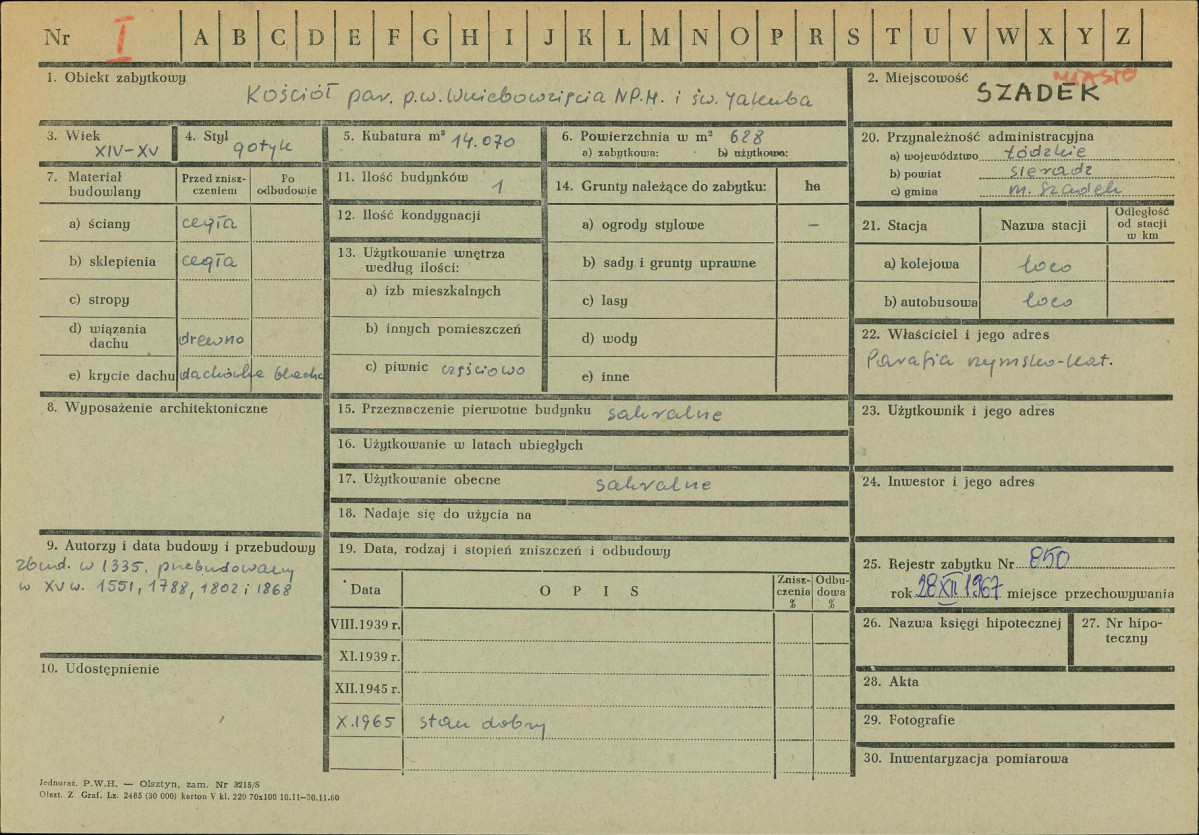 Nr I A B C D E F G H I J K L M N O P R S T U V W X Y Z
1. Obiekt zabytkowy
Kościół par. p.w. Wniebowzięcia NP.M. i św. Jakuba
2. Miejscowość
MIASTO
SZADEK
3. Wiek
XIV-XV
4. Styl
gotyk
5. Kubatura m³ 14.070
6. Powierzchnia w m² 628
a) zabytkowa: b) użytkowa:
7. Materiał budowlany
Przed znisz-
czeniem
Po
odbudowie
a) ściany cegła
b) sklepienia cegła
c) stropy
d) wiązania
dachu drewno
e) krycie dachu dachówka blacha
8. Wyposażenie architektoniczne
9. Autorzy i data budowy i przebudowy
zbud. w 1335. przebudowany
w XV w. 1551, 1788, 1802 i 1868
10. Udostępnienie
11. Ilość budynków 1
12. Ilość kondygnacji
13. Użytkowanie wnętrza
według ilości:
a) izb mieszkalnych
b) innych pomieszczeń
c) piwnic częściowo
14. Grunty należące do zabytku: ha
a) ogrody stylowe –
b) sady i grunty uprawne
c) lasy
d) wody
e) inne
15. Przeznaczenie pierwotne budynku sakralne
16. Użytkowanie w latach ubiegłych
17. Użytkowanie obecne sakralne
18. Nadaje się do użycia na
19. Data, rodzaj i stopień zniszczeń i odbudowy
Data
O P I S
Znisz-
czenia
%
Odbu-
dowa
%
VIII.1939 r.
XI.1939 r.
XII.1945 r.
X.1965 stan dobry
20. Przynależność administracyjna
a) województwo Łódzkie
b) powiat sieradz
c) gmina m. Szadek
21. Stacja
Nazwa stacji
Odległość
od stacji
w km
a) kolejowa loco
b) autobusowa loco
22. Właściciel i jego adres
Parafia rzymsko-kat.
23. Użytkownik i jego adres
24. Inwestor i jego adres
25. Rejestr zabytku Nr 850
rok 28 XII 1967 miejsce przechowywania
26. Nazwa księgi hipotecznej
27. Nr hipo-
teczny
28. Akta
29. Fotografie
30. Inwentaryzacja pomiarowa
Jednoraz. P.W.H. — Olsztyn, zam. Nr 3215/S
Olszt. Z. Graf. Lz. 2485 (30 000) karton V kl. 220 70x100 10.11–30.11.60